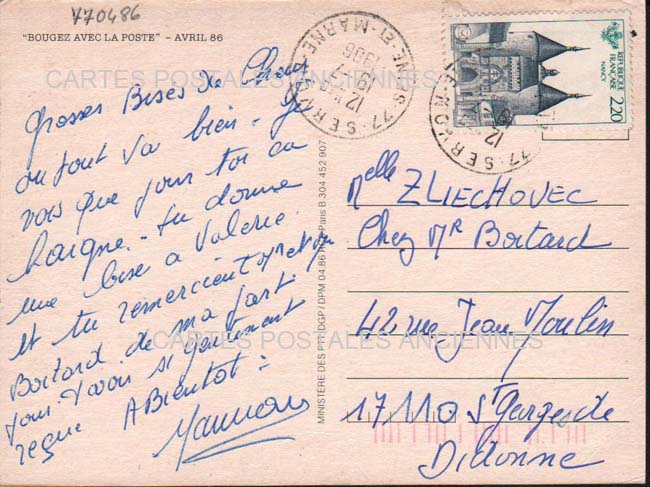 770486
"BOUGEZ AVEC LA POSTE" – AVRIL 86
CARTES POSTALES ANCIENNES
Grosses Bises de Chez
ou tout va bien. Je
vois que pour toi ca
baigne. tu donne
une bise a Valerie.
et tu remercient Mr et
Boitard de ma part
pour t'avoir si gentiment
reçue A Bientot :
MINISTÈRE DES PTT/DGP/ DPM 04.86 Paris B 304 452 907
77 SERVON
12 H
1986
SEINE-ET-MARNE
REPUBLIQUE
FRANÇAISE
NANCY
2,20
Melle ZLIECHOVEC
Chez Mr Boitard
42 rue Jean Moulin
CARTES POSTALES ANCIENNES
17110 St Georges de
Didonne